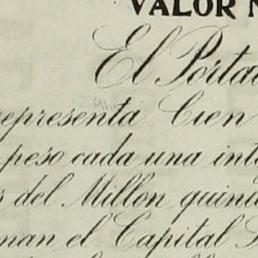 VALOR N
El Porta
representa Cien
peso cada una int
s del Millon quin
man el Capital S